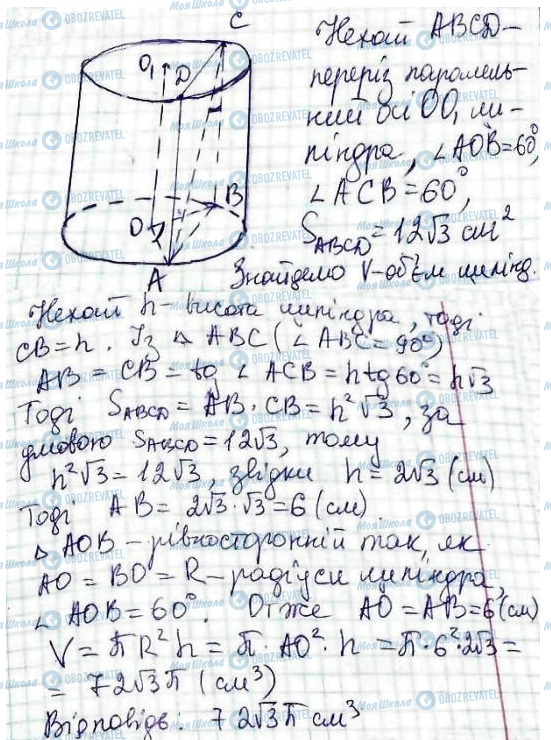 C
O₁
D
B
O
A
Нехай ABCD –
переріз паралель-
ний осі OO₁ ци-
ліндра, ∠AOB = 60°,
∠ACB = 60°,
S_ABCD = 12√3 см²
Знайдемо V – об'єм циліндр.
Нехай h – висота циліндра, тоді
CB = h. Із △ ABC (∠ABC = 90°)
AB = CB = tg ∠ACB = h tg 60° = h√3
Тоді S_ABCD = AB · CB = h²√3, за
умовою S_ABCD = 12√3, тому
h²√3 = 12√3, звідки h = 2√3 (см)
Тоді AB = 2√3 · √3 = 6 (см)
△ AOB – рівносторонній так, як
AO = BO = R – радіуси циліндра,
∠AOB = 60°. Отже AO = AB = 6 (см)
V = πR²h = π · AO² · h = π · 6² · 2√3 =
= 72√3π (см³)
Відповідь: 72√3π см³